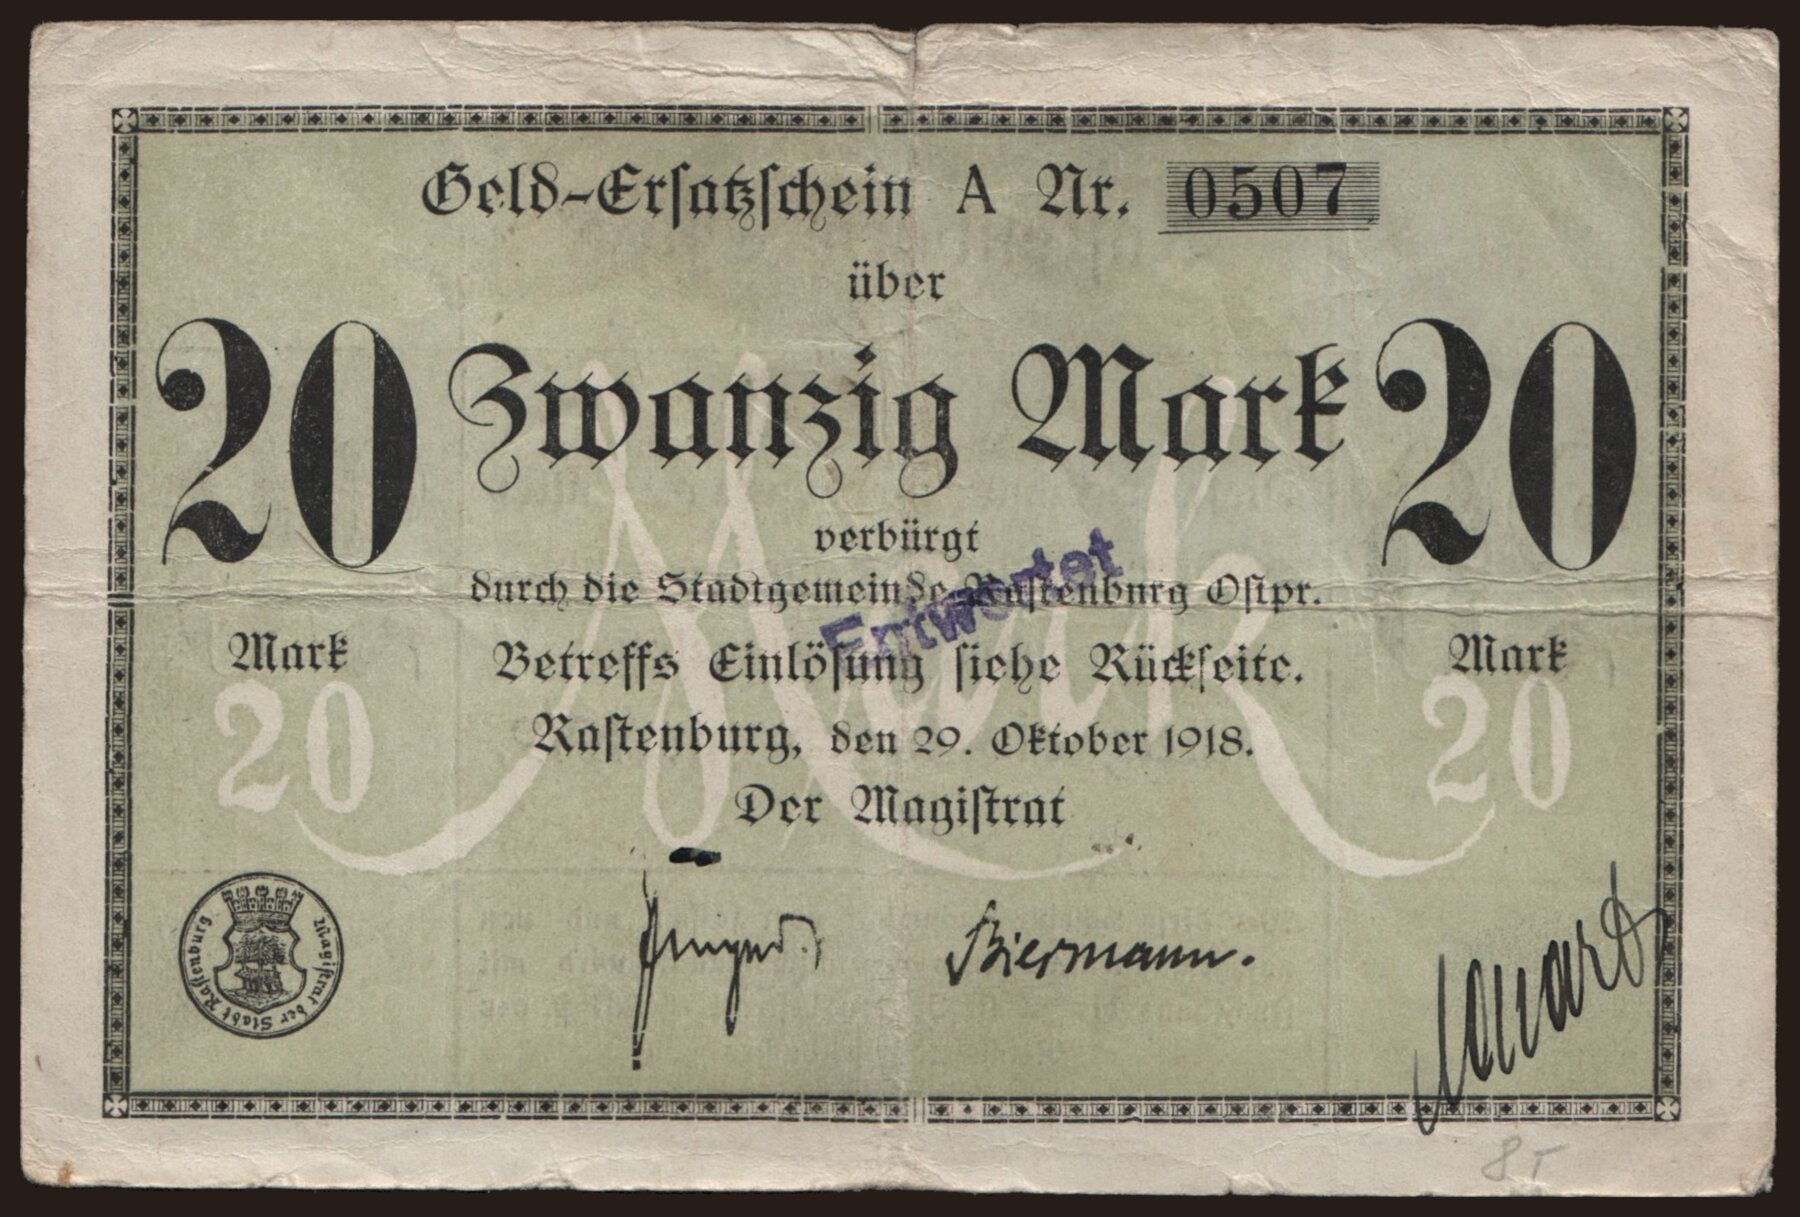 Geld-Ersatzschein A Nr. 0507
über
20 Zwanzig Mark 20
verbürgt
durch die Stadtgemeinde Rastenburg Ostpr.
Entwertet
Mark Betreffs Einlösung siehe Rückseite. Mark
20 Mark 20
Rastenburg, den 29. Oktober 1918.
Der Magistrat
Magistrat der Stadt Rastenburg
Biermann.